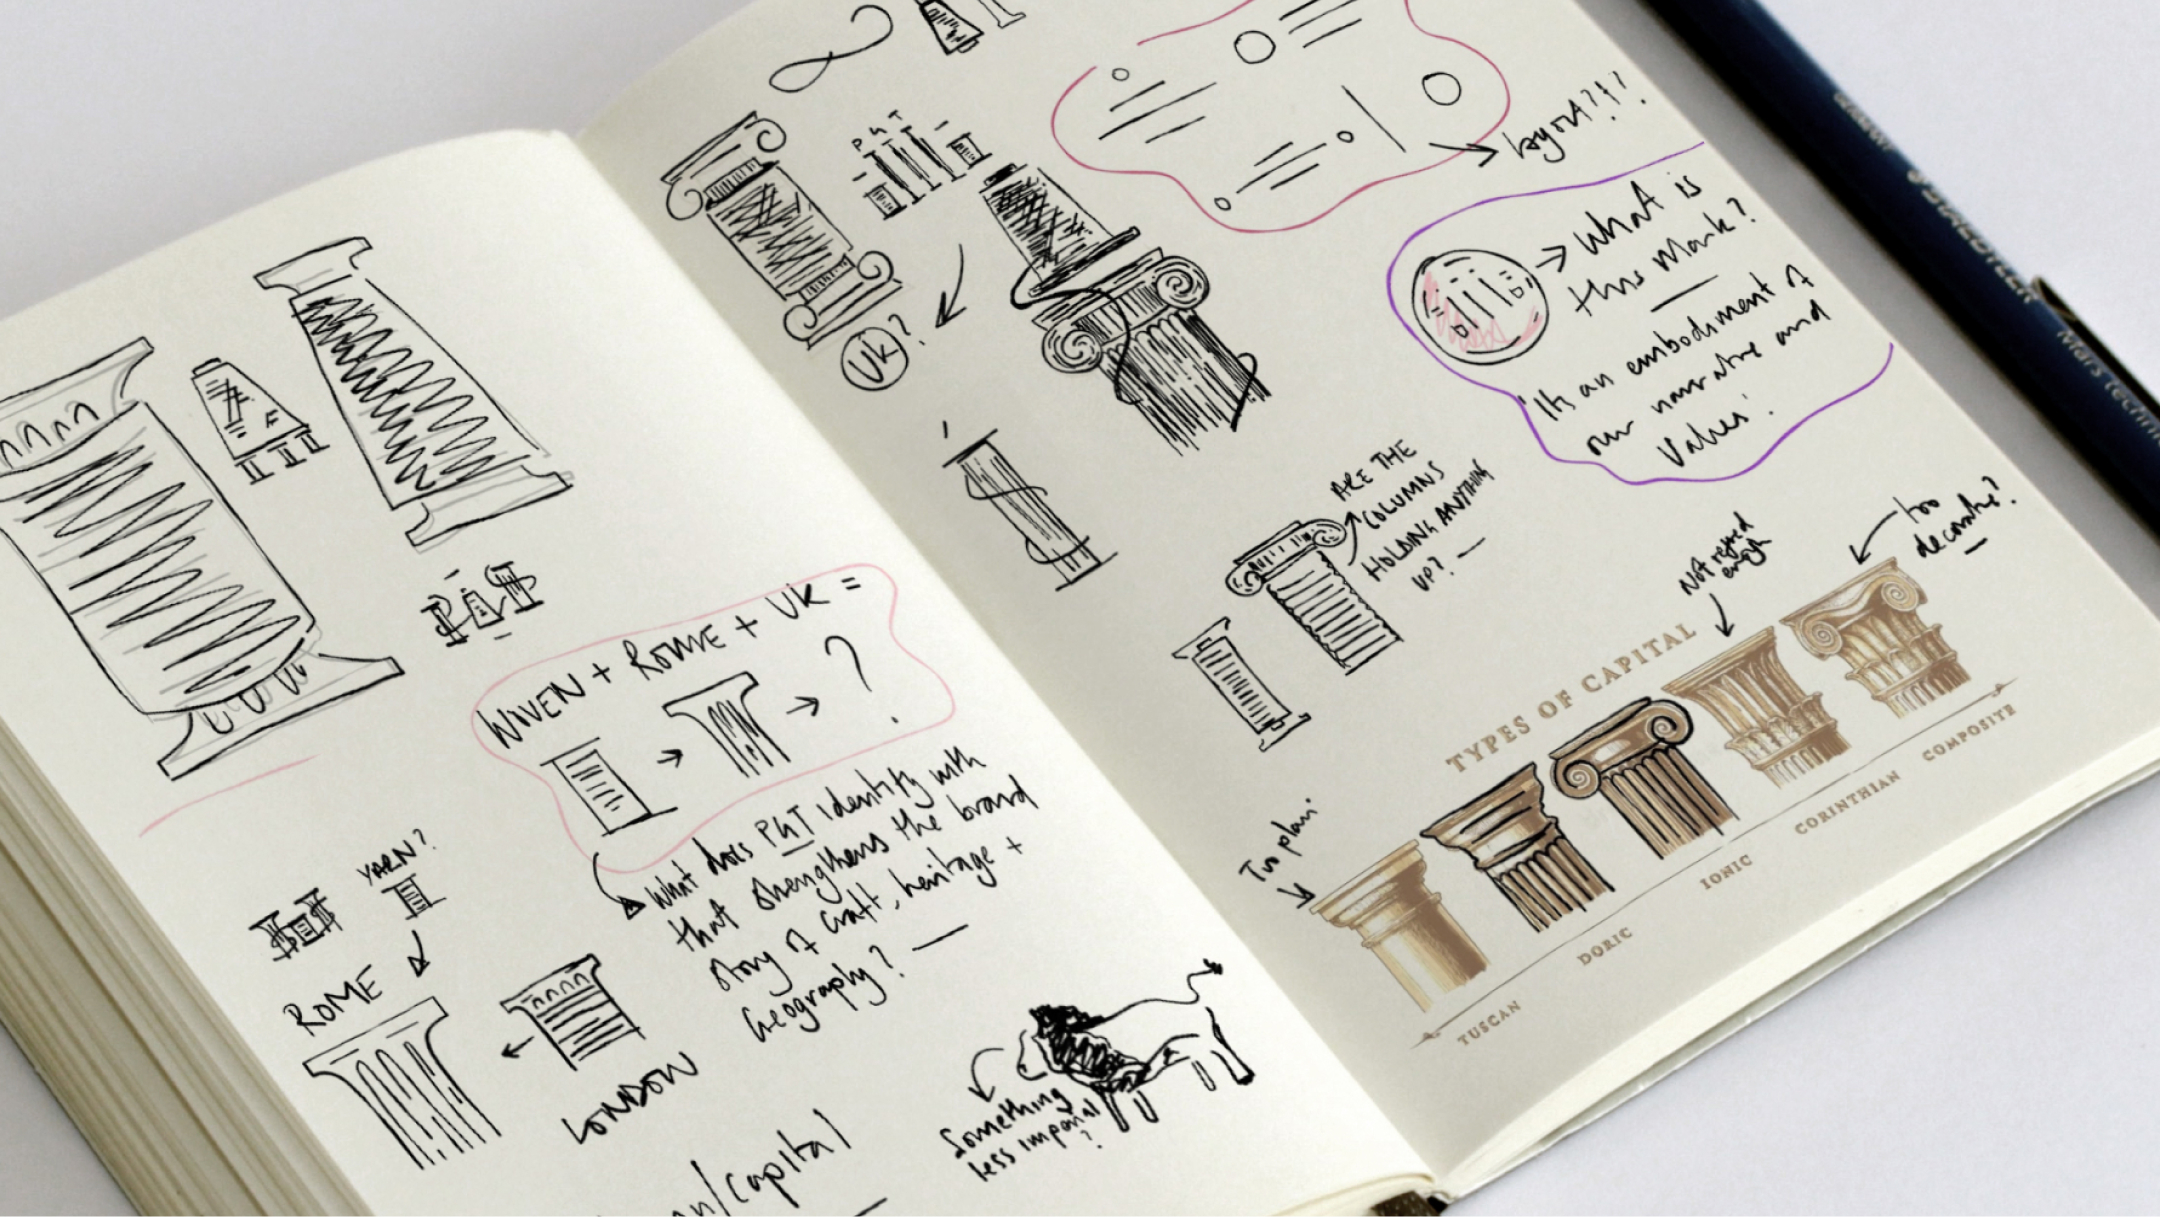 WOVEN + ROME + UK =
?
What does P&T identify with
that strengthens the brand
story of craft, heritage +
Geography?
YARN?
ROME
LONDON
/capital
Something
less imperial
?
P & T
UK?
layout?!?
What is
this Mark?
'Its an embodiment of
our narrative and
values'.
ARE THE
COLUMNS
HOLDING ANYTHING
UP?
too
decorative?
Not refined
enough
TYPES OF CAPITAL
Too plain
TUSCAN
DORIC
IONIC
CORINTHIAN
COMPOSITE
STAEDTLER
Mars technic